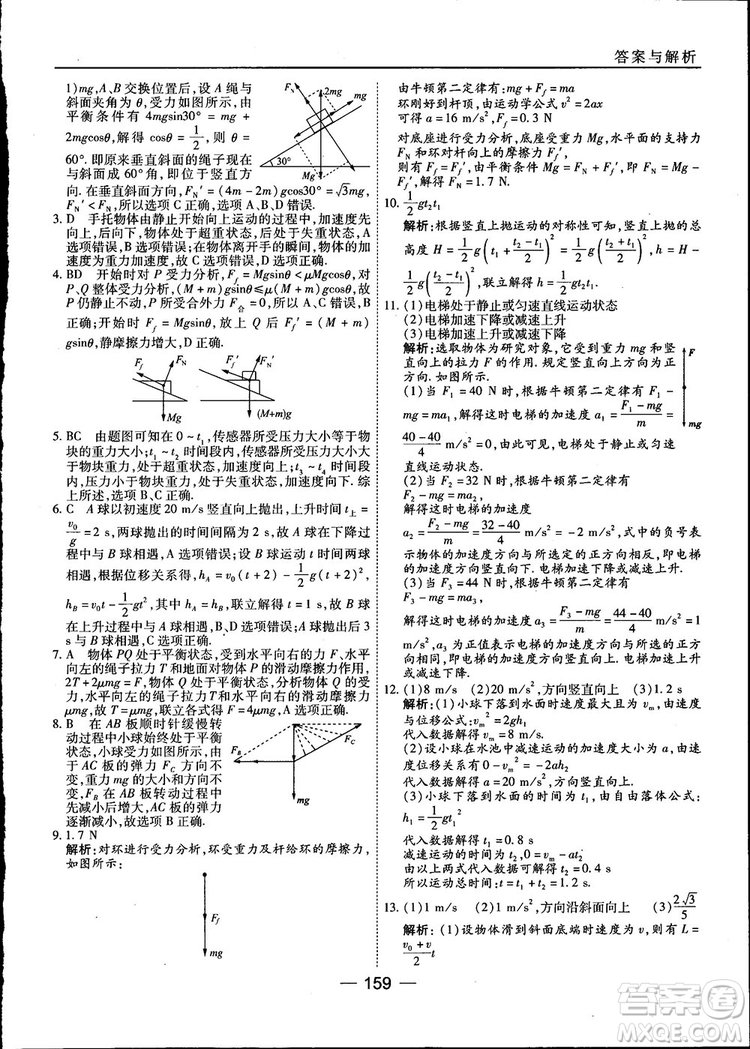 答案与解析
1)mg,A、B 交换位置后,设 A 绳与
斜面夹角为 θ,受力如图所示,由
平衡条件有 4mgsin30° = mg +
2mgcosθ,解得 cosθ = 1/2,则 θ =
60°.即原来垂直斜面的绳子现在
与斜面成 60°角,即位于竖直方
向.在垂直斜面方向,F_N′ = (4m - 2m)gcos30° = √3mg,
F_N′ < F_N,所以选项 C 正确,选项 A、B、D 错误.
F_N
2mg
mg
30°
Mg
3. D 手托物体由静止开始向上运动的过程中,加速度先
向上,后向下,物体处于超重状态,后处于失重状态,A
选项错误,B 选项错误;在物体离开手的瞬间,物体的加
速度为重力加速度,所以选项 C 错误,D 正确.
4. BD 开始时对 P 受力分析,F_f = Mgsinθ < μMgcosθ,对
P、Q 整体受力分析,(M + m)gsinθ ≤ μ(M + m)gcosθ,故
P 仍静止不动,亦即 P 所受外力 F合 = 0,选项 A、C 错误,B
正确;开始时 F_f = Mgsinθ,放上 Q 后 F_f′ = (M + m)
gsinθ,静摩擦力增大,D 正确.
F_f
F_N
Mg
F_f′
F_N′
(M+m)g
5. BC 由题图可知在 0 ~ t₁,传感器所受压力大小等于物
块的重力大小;t₁ ~ t₃ 时间段内,传感器所受压力大小大
于物块重力,处于超重状态,加速度向上;t₃ ~ t₄ 时间段
内,压力小于物块重力,处于失重状态,加速度向下.综
上所述,选项 B、C 正确.
6. C A 球以初速度 20 m/s 竖直向上抛出,上升时间 t上 =
v₀/g = 2 s,两球抛出的时间间隔为 2 s,故 A 在下降过
程中与 B 球相遇,A 选项错误;设 B 球运动 t 时间后两
球相遇,根据位移关系得,h_A = v₀(t + 2) - 1/2g(t + 2)²,
h_B = v₀t - 1/2gt²,其中 h_A = h_B,联立解得 t = 1 s,故 B 球
在上升过程中与 A 球相遇,B 选项错误;A 球抛出后 3
s 与 B 球相遇,C 选项正确.
7. A 物体 PQ 处于平衡状态,受到向右的力 F、水平方
向左的绳子拉力 T 和地面对物体 P 的滑动摩擦力作用,
2T + 2μmg = F,物体处于平衡状态,分析物体 Q 的受
力,水平向左的绳子拉力 T 和水平向右的滑动摩擦力
μmg,故 T = μmg,故 F = 4μmg,故选项 A 正确.
8. B 在 AB 板顺时针缓慢转
动过程中小球始终处于平衡
状态,小球受力如图所示,由
于 AC 板的弹力 F_C 方向不
变,重力 mg 的大小和方向不
变,F_B 在 AB 板转动过程中
先减小后增大,AC 板的弹力
逐渐减小,故选项 B 正确.
F_B
F_C
mg
9. 1.7 N
解析:对环进行受力分析,环受重力及杆给环的摩擦力,
如图所示:
F_f
mg
由牛顿第二定律有:mg + F_f = ma
环刚好到杆顶,由运动学公式 v² = 2ax
可得 a = 16 m/s²,F_f = 0.3 N
对底座进行受力分析,底座受重力 Mg,水平面的支持力
F_N 和环对杆向上的摩擦力 F_f′,
则有 F_f = F_f′,由平衡条件有:F_N + F_f′ = Mg,即 F_N = Mg -
F_f′,求得 F_N = 1.7 N.
10. 1/2gt₂t₁
解析:根据竖直上抛运动的对称性可知,竖直上抛的总
高度 H = 1/2g(t₁ + (t₂ - t₁)/2)² = 1/2g((t₂ + t₁)/2)²,h = H -
1/2g((t₂ - t₁)/2)²,联立解得 h = 1/2gt₂t₁.
11. (1)电梯处于静止或匀速直线运动状态
(2)电梯加速下降或减速上升
(3)电梯加速上升或减速下降
解析:选取物体为研究对象,它受到重力 mg 和竖
直向上的拉力 F 的作用.规定竖直向上方向为正
方向.如图所示.
F
mg
(1)当 F₁ = 40 N 时,根据牛顿第二定律有 F₁ -
mg = ma₁,解得这时电梯的加速度 a₁ = (F₁ - mg)/m =
(40 - 40)/4 m/s² = 0,由此可见,电梯处于静止或匀速
直线运动状态.
(2)当 F₂ = 32 N 时,根据牛顿第二定律有
F₂ - mg = ma₂,
解得这时电梯的加速度
a₂ = (F₂ - mg)/m = (32 - 40)/4 m/s² = -2 m/s²,式中的负号表
示物体的加速度方向与所选定的正方向相反,即电梯
的加速度方向竖直向下.电梯加速下降或减速上升.
(3)当 F₃ = 44 N 时,根据牛顿第二定律有
F₃ - mg = ma₃,
解得这时电梯的加速度 a₃ = (F₃ - mg)/m = (44 - 40)/4 m/s² =
1 m/s²,a₃ 为正值表示电梯的加速度方向与所选的正
方向相同,即电梯的加速度方向竖直向上.电梯加速
上升或减速下降.
12. (1)8 m/s (2)20 m/s²,方向竖直向上 (3)1.2 s
解析:(1)小球下落到水面时速度最大且为 v_m,由速度
与位移公式:v_m² = 2gh₁
代入数据解得 v_m = 8 m/s.
(2)设小球在水池中减速运动的加速度大小为 a,由速
度与位移公式:0 - v_m² = -2ah₂
代入数据解得 a = 20 m/s²,方向竖直向上.
(3)小球下落到水面的时间 t₁,由自由落体公式:h₁ =
1/2gt₁²
代入数据解得 t₁ = 0.8 s
减速运动的时间为 t₂,0 = v_m - at₂
由以上两式可解得 t₂ = 0.4 s
所以总时间:t = t₁ + t₂ = 1.2 s.
13. (1)1 m/s (2)1 m/s²,方向沿斜面向上 (3)2√3/5
解析:(1)设物体滑到斜面底端时速度为 v,则有 L =
(v₀ + v)/2 t
— 159 —
答案卷
MXQE.COM